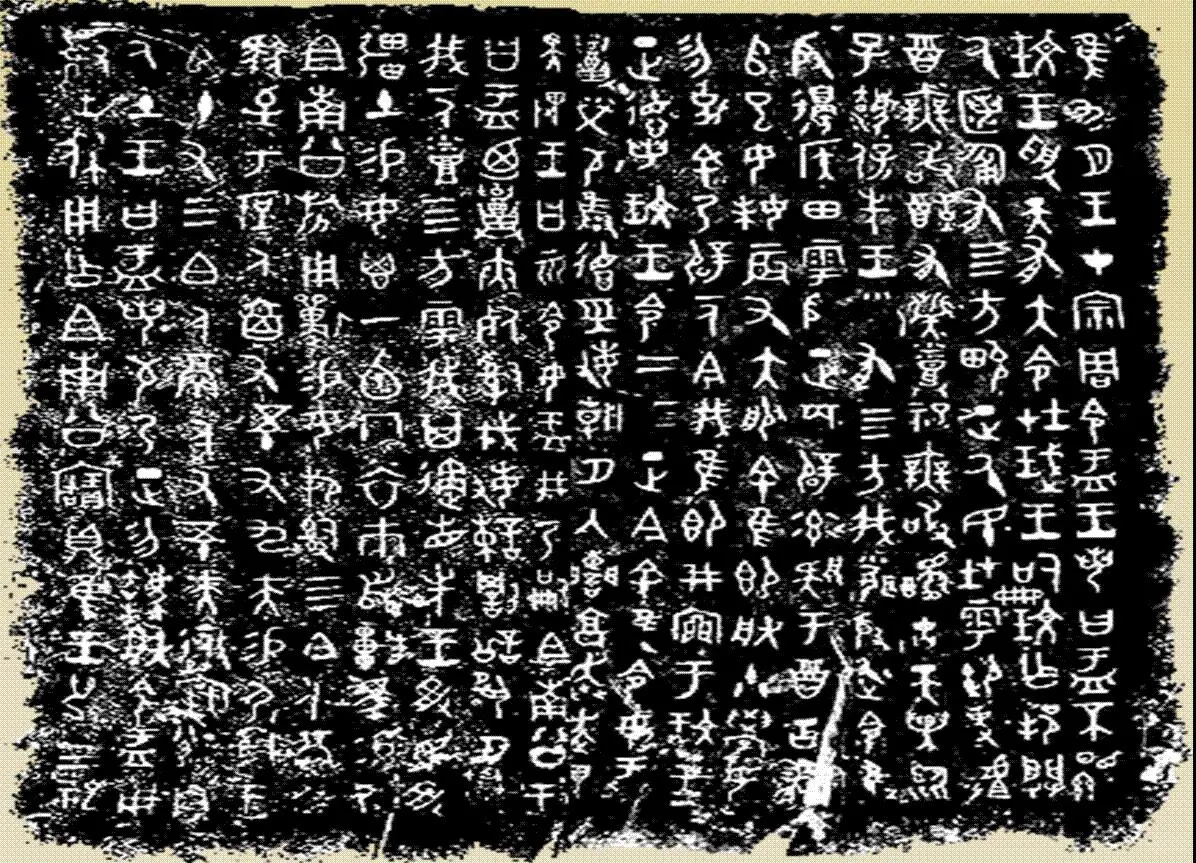 隹九月王才宗周令盂王若曰盂不顯
玟王受天有大令在珷王嗣玟乍邦闢
厥匿匍有四方畯正厥民在雩御事𠭯
酉無敢酖有祡烝祀無敢䤖古天異臨
子灋保先王□有四方我聞殷述令隹
殷邊侯田雩殷正百辟率肄于酉古喪
𠂤巳女妹辰又大服余隹即朕小學女
勿剋余乃辟一人今我隹即井㐭于玟王
正德若玟王令二三正今余隹令女盂
召榮敬雝德巠敏朝夕入讕享奔走畏
天畏王曰𠂤令女盂井乃嗣且南公王
曰盂迺召夾死司戎敏諫罰訟夙夕召
我一人烝四方雩我其遹省先王受民受
疆土易女鬯一卣冂衣巿舄車馬易乃
且南公旂用遘易女邦司四白人鬲自
馭至于庶人六百又五十又九夫易尸司
王臣十又三白人鬲千又五十夫遷自
厥土王曰盂若敬乃正勿灋朕令盂
用對王休用乍且南公寶鼎隹王廿又三祀